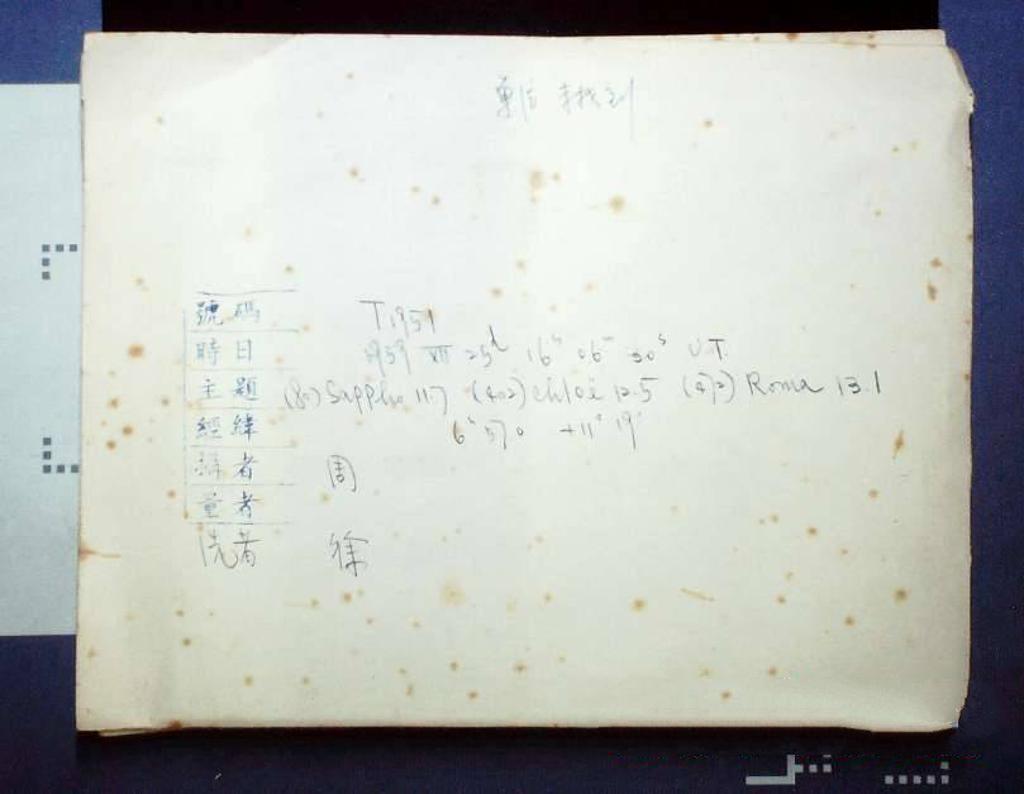 未找到
號碼 T1951
時日 1959 XII 25d 16h 06m 30s U.T.
主題 (80) Sappho 11.7 (402) Chloë 12.5 (472) Roma 13.1
經緯 6h 57.0 +11° 19'
攝者 周
量者
洗者 徐